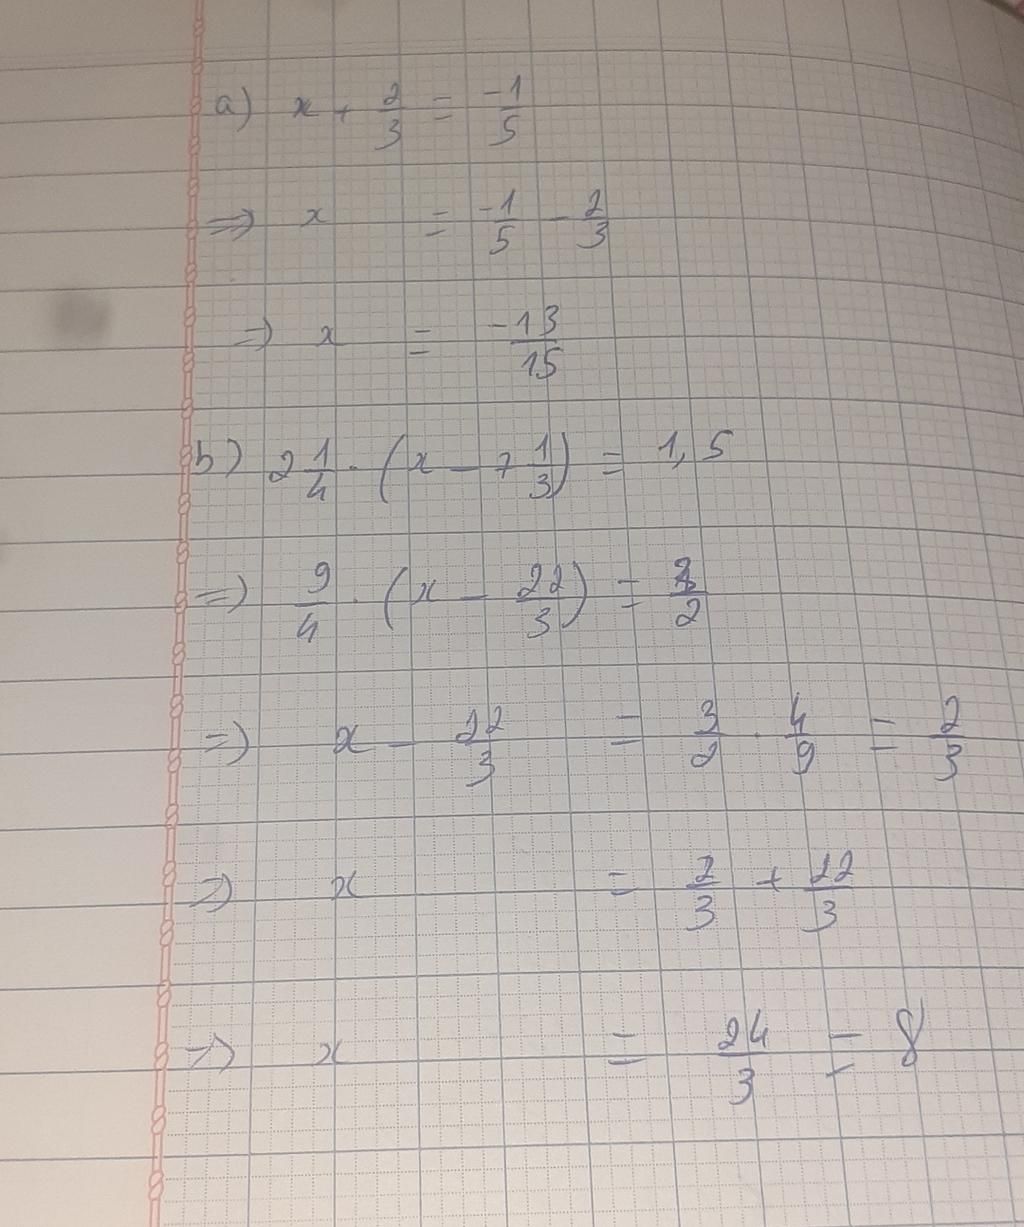 a) x + 2/3 = -1/5
=> x = -1/5 - 2/3
=> x = -13/15
b) 2 1/4 . (x - 7 1/3) = 1,5
=> 9/4 . (x - 22/3) = 3/2
=> x - 22/3 = 3/2 . 4/9 = 2/3
=> x = 2/3 + 22/3
=> x = 24/3 = 8